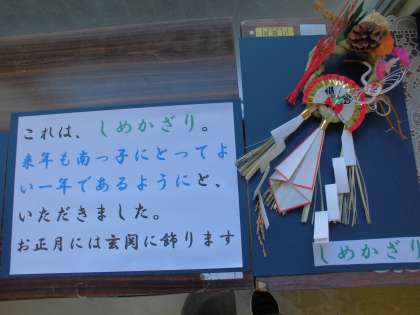 これは、しめかざり。
来年も南っ子にとってよ
い一年であるようにと、
いただきました。
お正月には玄関に飾ります
しめかざり